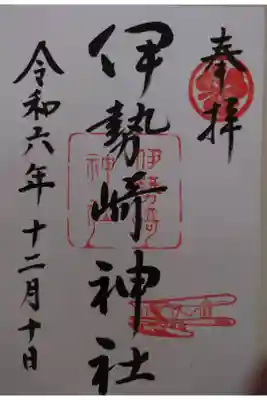 奉拝
伊勢﨑神社
伊勢﨑
神社
令和六年十二月十日